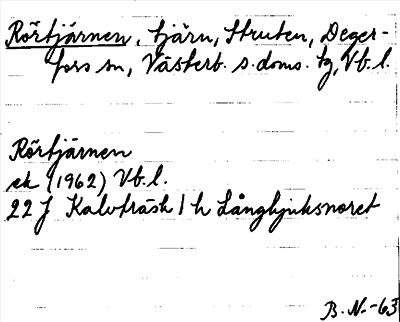 Rörtjärnen, tjärn, Struten, Deger-
fors sn, Västerb. s. doms. tg, Vb. l.
Rörtjärnen
ek (1962) Vb. l.
22 J Kalvträsk 1 h Långbjuksnoret
B. N. -63